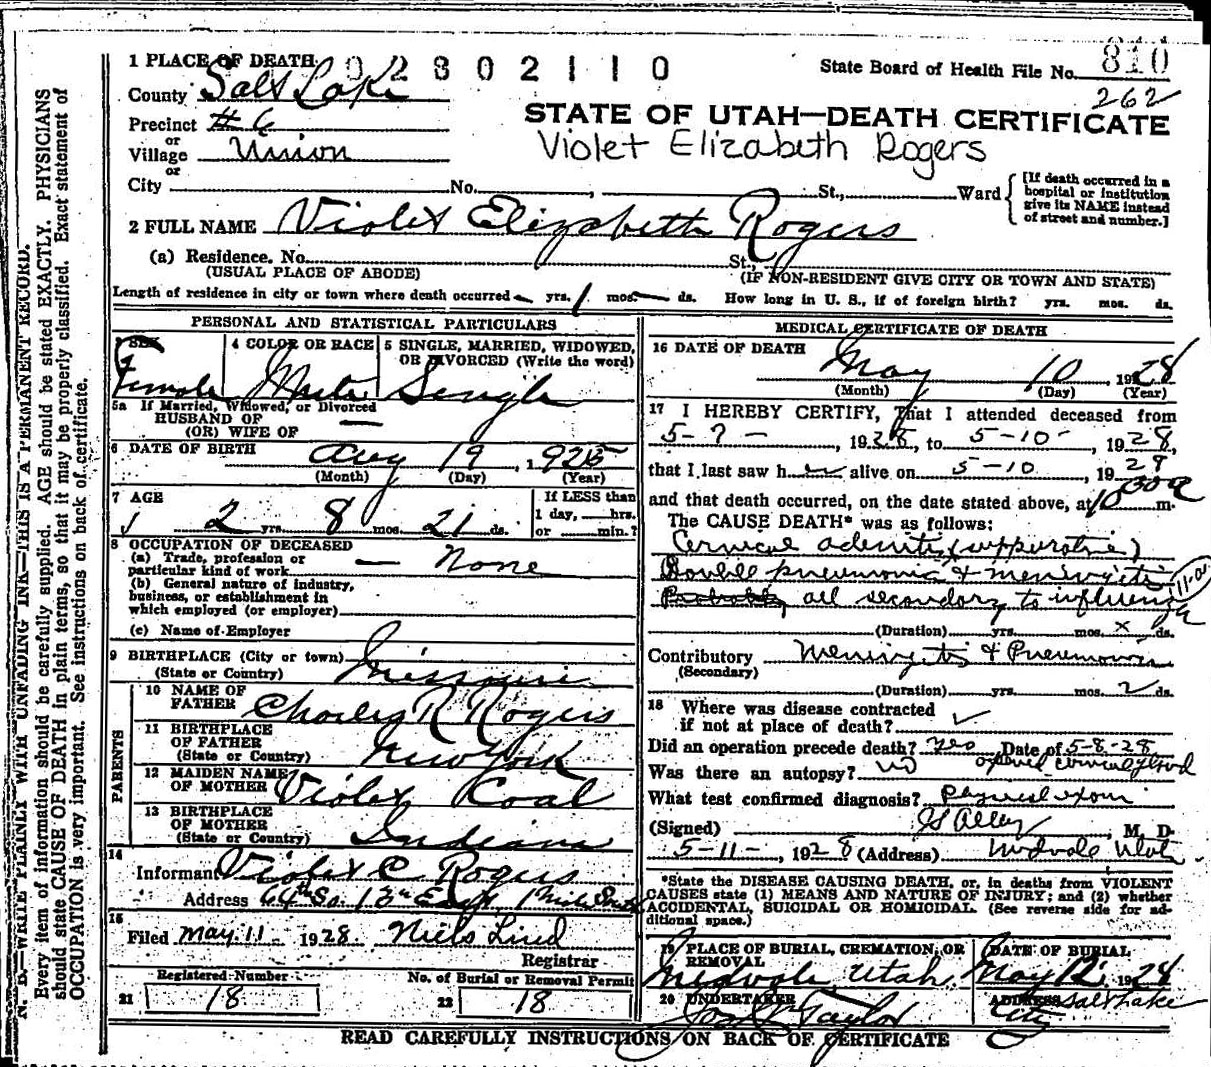 1 PLACE OF DEATH 92802110
State Board of Health File No. 810
County Salt Lake
262
Precinct #6
STATE OF UTAH—DEATH CERTIFICATE
or
Village Union
Violet Elizabeth Rogers
or
City No. , St., Ward
[If death occurred in a hospital or institution give its NAME instead of street and number.]
2 FULL NAME Violet Elizabeth Rogers
(a) Residence. No. St.,
(USUAL PLACE OF ABODE) (IF NON-RESIDENT GIVE CITY OR TOWN AND STATE)
Length of residence in city or town where death occurred — yrs. 1 mos. — ds. How long in U. S., if of foreign birth? yrs. mos. ds.
PERSONAL AND STATISTICAL PARTICULARS
3 SEX 4 COLOR OR RACE 5 SINGLE, MARRIED, WIDOWED,
OR DIVORCED (Write the word)
Female White Single
5a If Married, Widowed, or Divorced
HUSBAND OF
(OR) WIFE OF —
6 DATE OF BIRTH Aug 19, 1925
(Month) (Day) (Year)
7 AGE If LESS than
1 day, hrs.
2 yrs. 8 mos. 21 ds. or min.?
8 OCCUPATION OF DECEASED
(a) Trade, profession or
particular kind of work — None
(b) General nature of industry,
business, or establishment in
which employed (or employer)
(c) Name of Employer
9 BIRTHPLACE (City or town)
(State or Country) Missouri
PARENTS
10 NAME OF
FATHER Charles R Rogers
11 BIRTHPLACE
OF FATHER
(State or Country) New York
12 MAIDEN NAME
OF MOTHER Violet Coal
13 BIRTHPLACE
OF MOTHER
(State or Country) Indiana
14
Informant Violet C Rogers
Address 64th So. 13th East
15
Filed May 11 1928 Niels Lind
Registrar
Registered Number No. of Burial or Removal Permit
21 18 22 18
MEDICAL CERTIFICATE OF DEATH
16 DATE OF DEATH
May 10, 1928
(Month) (Day) (Year)
17 I HEREBY CERTIFY, That I attended deceased from
5-7-, 1928, to 5-10-, 1928,
that I last saw her alive on 5-10, 1928
and that death occurred, on the date stated above, at 10 30a m.
The CAUSE DEATH* was as follows:
Cervical adenitis (suppurative)
Double pneumonia & meningitis
Probably all secondary to influenza
11-a
(Duration) yrs. mos. x ds.
Contributory Meningitis & Pneumonia
(Secondary)
(Duration) yrs. mos. 2 ds.
18 Where was disease contracted
if not at place of death? ✓
Did an operation precede death? yes Date of 5-8-28
Was there an autopsy? no opened cervical gland
What test confirmed diagnosis? physical exam
(Signed) Alley, M. D.
5-11-, 1928 (Address) Midvale Utah
*State the DISEASE CAUSING DEATH, or, in deaths from VIOLENT
CAUSES state (1) MEANS AND NATURE OF INJURY; and (2) whether
ACCIDENTAL, SUICIDAL OR HOMICIDAL. (See reverse side for ad-
ditional space.)
19 PLACE OF BURIAL, CREMATION, OR REMOVAL DATE OF BURIAL
Midvale, Utah May 12, 1928
20 UNDERTAKER ADDRESS Salt Lake
Taylor City
READ CAREFULLY INSTRUCTIONS ON BACK OF CERTIFICATE
N. B.—WRITE PLAINLY WITH UNFADING INK—THIS IS A PERMANENT RECORD.
Every item of information should be carefully supplied. AGE should be stated EXACTLY. PHYSICIANS
should state CAUSE OF DEATH in plain terms, so that it may be properly classified. Exact statement of
OCCUPATION is very important. See instructions on back of certificate.